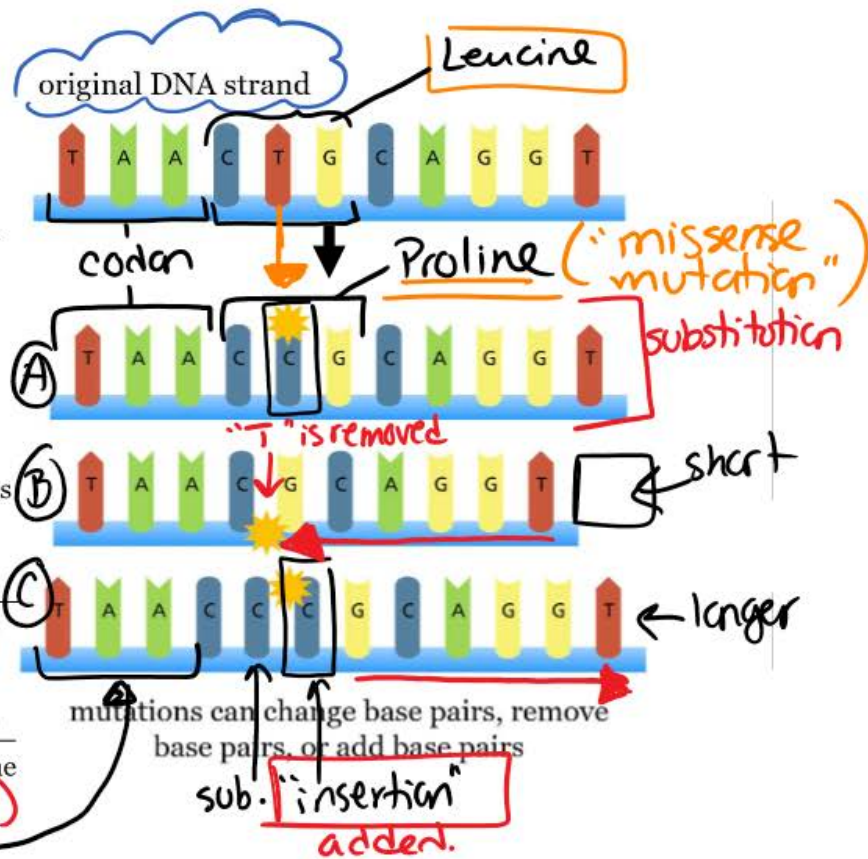 Leucine
original DNA strand
T A A C T G C A G G T
codon
Proline ("missense
mutation")
substitution
A T A A C C G C A G G T
"T" is removed
s
B T A A C G C A G G T
short
C T A A C C C G C A G G T
longer
mutations can change base pairs, remove
base pairs, or add base pairs
sub. "insertion"
added.